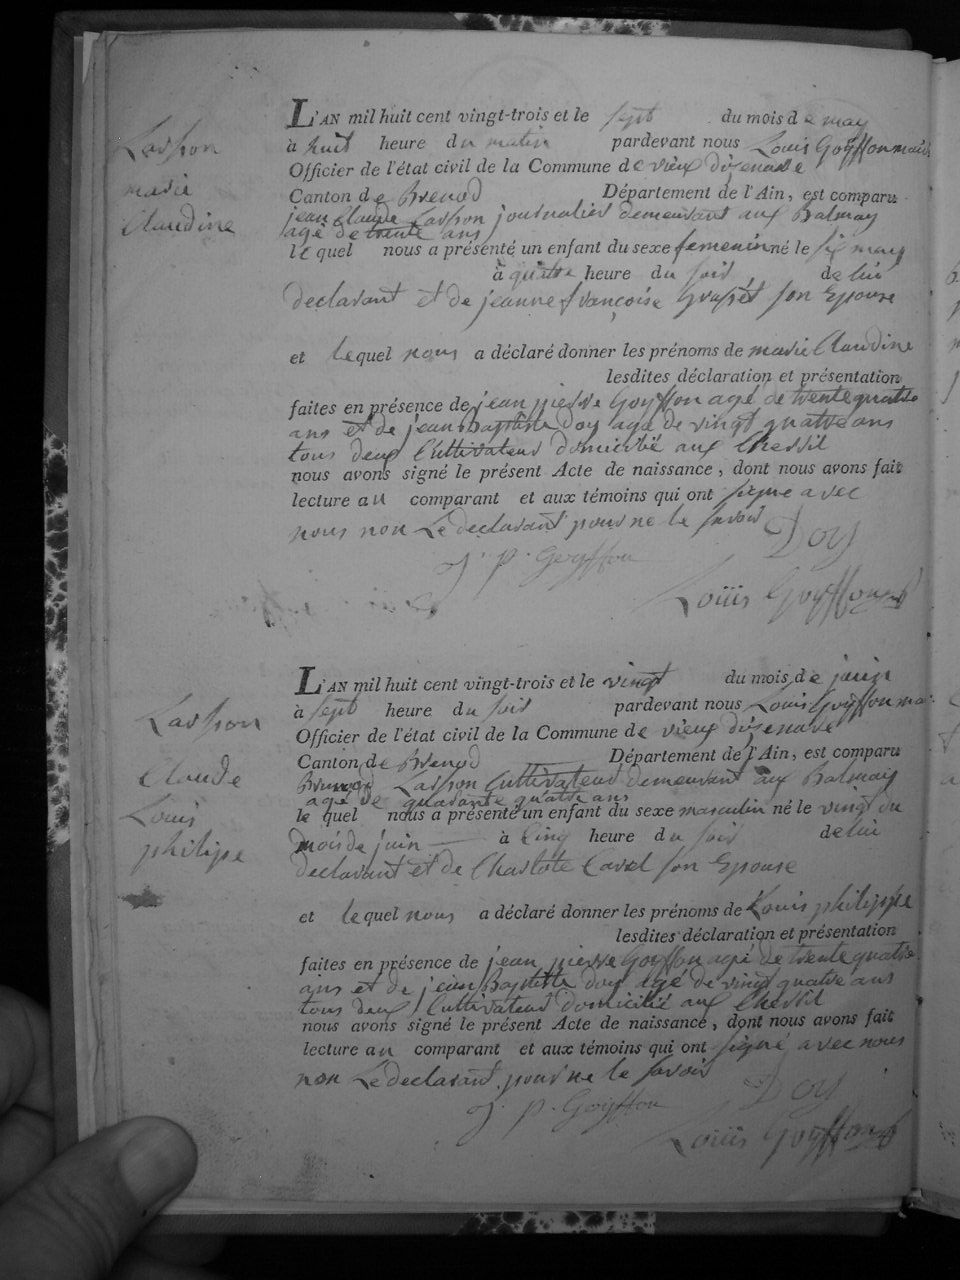 Lasson
marie
Claudine
L'AN mil huit cent vingt-trois et le sept du mois de may
à huit heure du matin pardevant nous Louis Goyffon maire
Officier de l'état civil de la Commune de vieux d'izenave
Canton de Brenod Département de l'Ain, est comparu
jean Claude Lasson journalier demeurant aux Balmay
agé de trente ans
le quel nous a présenté un enfant du sexe femenin né le six may
à quatre heure du soir de lui
declarant et de jeanne françoise Grasset son Epouse
et lequel nous a déclaré donner les prénoms de marie Claudine
lesdites déclaration et présentation
faites en présence de jean pierre Goyffon agé de trente quatre
ans et de jean Baptiste Doy age de vingt quatre ans
tous deux Cultivateur domicilié aux Chessit
nous avons signé le présent Acte de naissance, dont nous avons fait
lecture au comparant et aux témoins qui ont signe avec
nous non Le declarant pour ne le savoir
Doy
J. P. Goyffon
Loüis Goyffon
Lasson
Claude
Louis
philipe
L'AN mil huit cent vingt-trois et le vingt du mois de juin
à sept heure du soir pardevant nous Louis Goyffon mai
Officier de l'état civil de la Commune de vieux d'izenave
Canton de Brenod Département de l'Ain, est comparu
Lasson Cultivateur demeurant aux Balmay
agé de quarante quatre ans
le quel nous a présenté un enfant du sexe masculin né le vingt du
mois de juin à Cinq heure du soir de lui
declarant et de Charlote Cavel son Epouse
et lequel nous a déclaré donner les prénoms de Louis philippe
lesdites déclaration et présentation
faites en présence de jean pierre Goyffon agé de trente quatre
ans et de jean Baptiste doy agé de vingt quatre ans
tous deux Cultivateur domicilié aux Chessit
nous avons signé le présent Acte de naissance, dont nous avons fait
lecture au comparant et aux témoins qui ont signé avec nous
non Le declarant pour ne le savoir
Doy
J. P. Goyffon
Loüis Goyffon